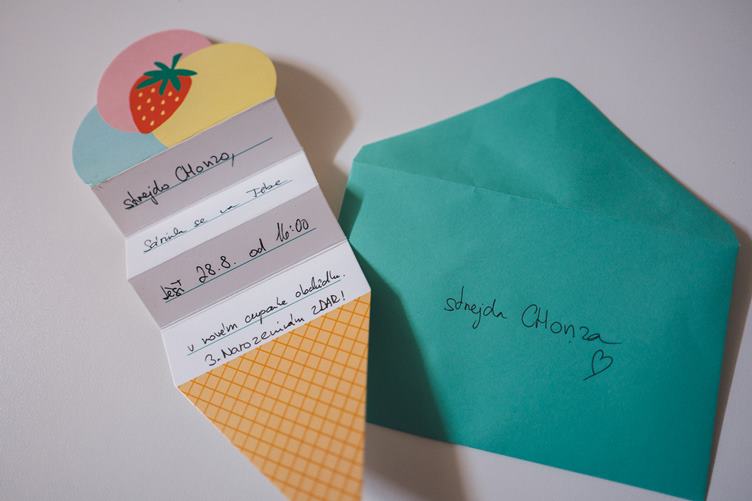 strejdo CHonzo,
se na Tebe
těší 28.8. od 16:00
v novém cupcake obchůdku.
3. Narozeninám ZDAR!
strejda CHonza